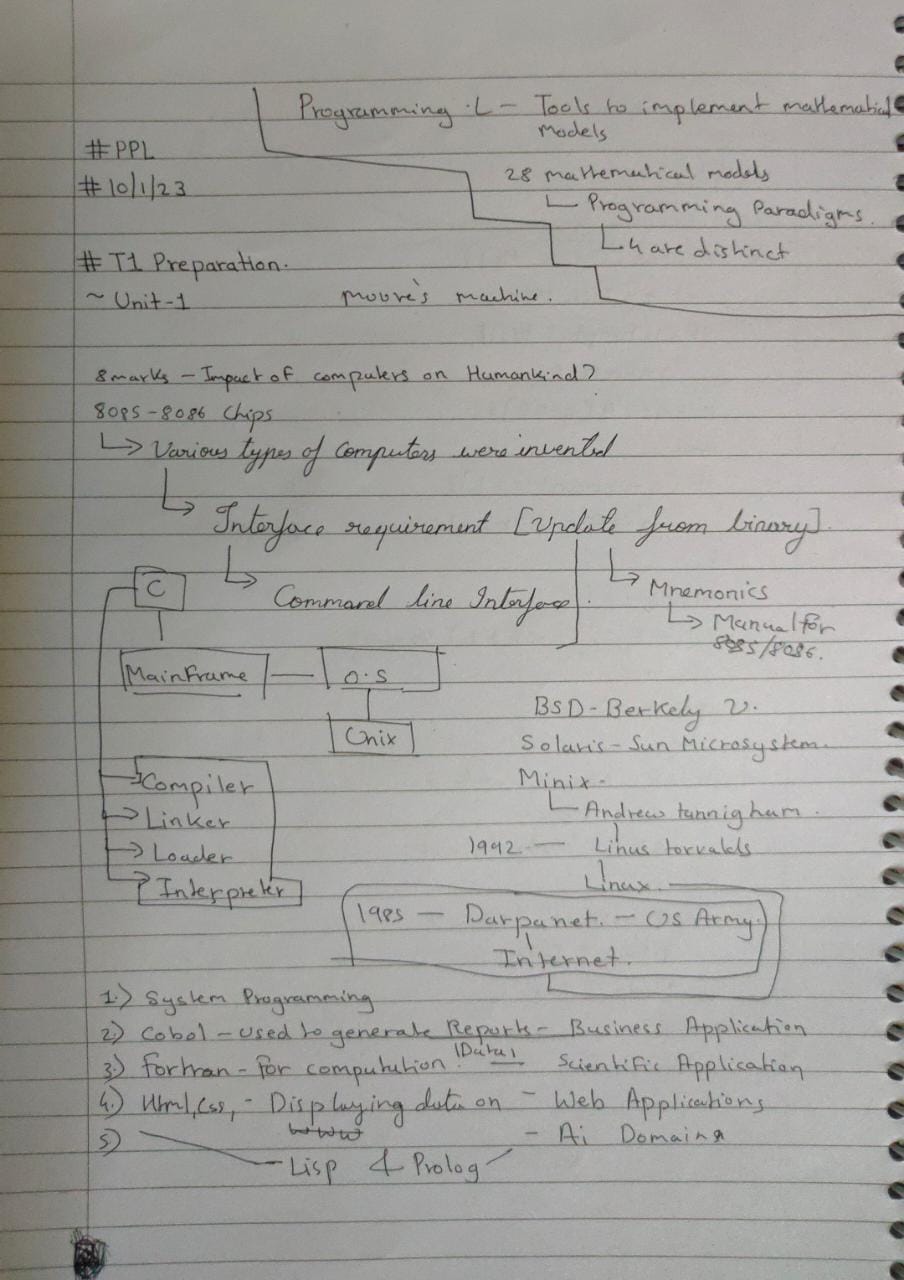 Programming .L - Tools to implement mathematical
Models
# PPL
# 10/1/23
28 mathematical models
Programming Paradigms.
4 are distinct
# T1 Preparation.
~ Unit-1
Moore's machine.
8 marks - Impact of computers on Humankind?
8085-8086 Chips
Various types of Computers were invented
Interface requirement [Update from binary].
Command line Interface.
Mnemonics
Manual for
8085/8086.
C
MainFrame
O.S
Unix
BSD - Berkely U.
Solaris - Sun Microsystem.
Minix -
Andrew tannigham.
1992 - Linus torvalds
Linux.
Compiler
Linker
Loader
Interpreter
1985 - Darpanet. - US Army.
Internet.
1.) System Programming
2) Cobol - used to generate Reports - Business Application
3.) Fortran - for computation. |Data| - Scientific Application
4.) Html, Css, - Displaying data on - Web Applications
www
5) - Ai Domains
Lisp & Prolog